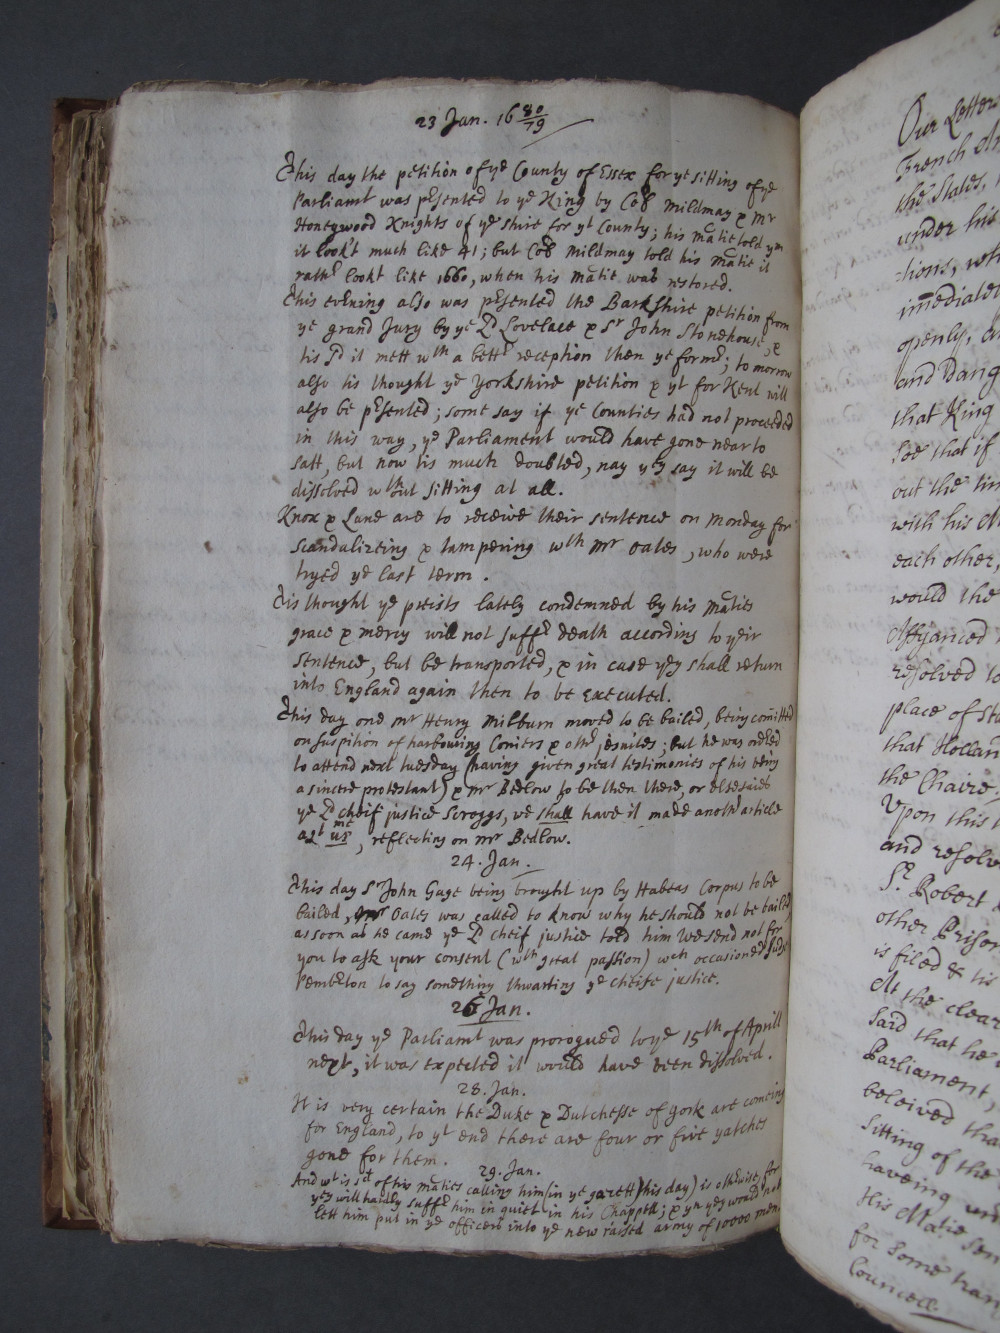 23 Jan. 16 80/79
This day the petition of ye County of Essex for ye sitting of ye
Parliamt was presented to ye King by Coll Mildmay & Mr
Honeywood Knights of ye shire for yt County; his Matie told ym
it look't much like 41; but Coll Mildmay told his Matie it
rathr lookt like 1660, when his Matie was restored.
This evening also was presented the Barkshire petition from
ye grand Jury by ye Ld Lovelace & Sr John Stonehouse, &
tis sd it mett wth a bettr reception then ye formr; to morrow
also tis thought ye Yorkshire petition & yt for Kent will
also be presented; some say if ye Counties had not proceeded
in this way, ye Parliament would have gone near to
satt, but now tis much doubted, nay yey say it will be
dissolved wthout sitting at all.
Knox & Lane are to receive their sentence on Monday for
scandalizeing & tampering wth Mr Oates, who were
tryed ye last term.
Tis thought ye preists lately condemned by his Maties
grace & mercy will not suffr death according to yeir
sentence, but be transported, & in case yey shall return
into England again then to be executed.
This day one Mr Henry Milburn moved to be bailed, being comitted
on suspition of harbouring Coniers & othr Jesuites; but he was ordred
to attend next tuesday (having given great testimonies of his being
a sincere protestant) & Mr Bedlow to be then there, or else saies
ye Ld cheif justice Scroggs, we shall have it made anothr article
agt us me, reflecting on Mr Bedlow.
24. Jan.
This day Sr John Gage being brought up by Habeas Corpus to be
bailed, Mr Oates was called to know why he should not be bailed,
as soon as he came ye Ld cheif justice told him We send not for
you to ask your consent (wth great passion) wch occasioned Judge
Pemberton to say something thwarting ye cheife justice.
26 Jan.
This day ye Parliamt was prorogued to ye 15th of Aprill
next, it was expected it would have been dissolved.
28. Jan.
It is very certain the Duke & Dutchesse of York are comeing
for England, to yt end there are four or five yatches
gone for them.
29. Jan.
And wt is sd of his Maties calling him (in ye gazett this day) is othrwise, for
yey will hardly suffr him in quiet in his Chappell; & yn yey would not
lett him put in ye officers into ye new raised army of 10000 men.
Our Letter
French
the States,
under his
tions,
immediate
openly,
and Dang
that King
See that if
out the
with his
each other,
would the
Affyanced
resolved to
place of
that Holland
the Chaire
Upon this
and resolve
Sr Robert
other Prison
is filed & tis
At the clear
said that he
Parliament,
beleived that
Sitting of the
haveing
His Matie
for some
Councell.